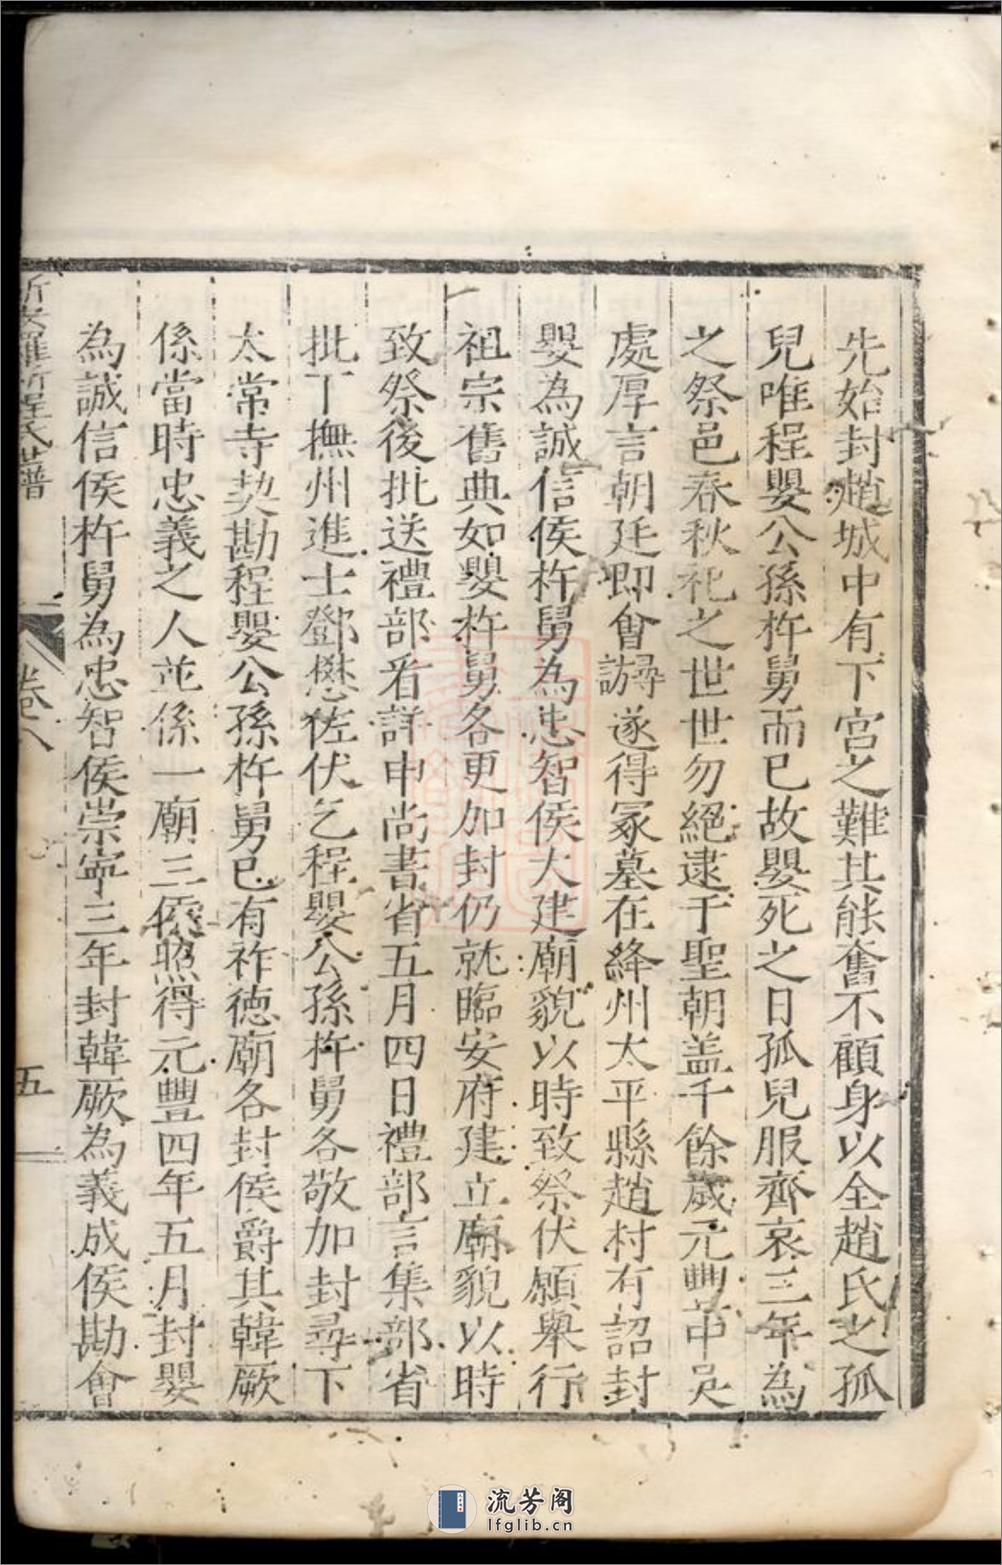 先始封趙城中有下宮之難其能奮不顧身以全趙氏之孤
兒唯程嬰公孫杵舅而已故嬰死之日孤兒服齊哀三年為
之祭邑春秋祀之世世勿絕逮于聖朝盖千餘歲元豐中吴
處厚言朝廷即會訪尋遂得冢墓在絳州太平縣趙村有詔封
嬰為誠信侯杵舅為忠智侯大建廟貌以時致祭伏願舉行
祖宗舊典如嬰杵舅各更加封仍就臨安府建立廟貌以時
致祭後批送禮部看詳申尚書省五月四日禮部言集部省
批丁撫州進士鄧懋佐伏乞程嬰公孫杵舅各敬加封尋下
太常寺契勘程嬰公孫杵舅已有祚德廟各封侯爵其韓厥
係當時忠義之人並係一廟三
照得元豐四年五月封嬰
為誠信侯杵舅為忠智侯崇寧三年封韓厥為義成侯勘會
程氏譜
卷八
五
流芳阁
lfglib.cn